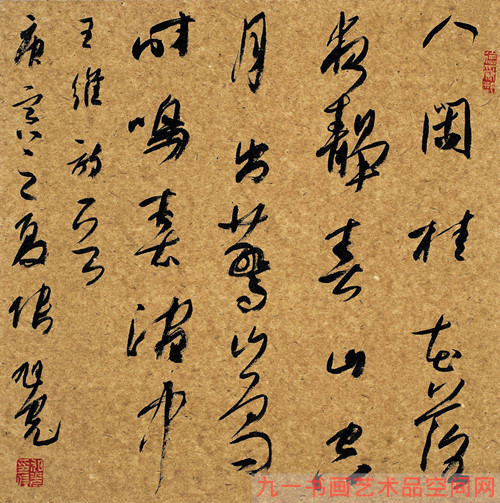 人閑桂花落
夜靜春山空
月出驚山鳥
時鳴春澗中
王維詩一首
庚寅之夏張旭
九一书画艺术品空间网